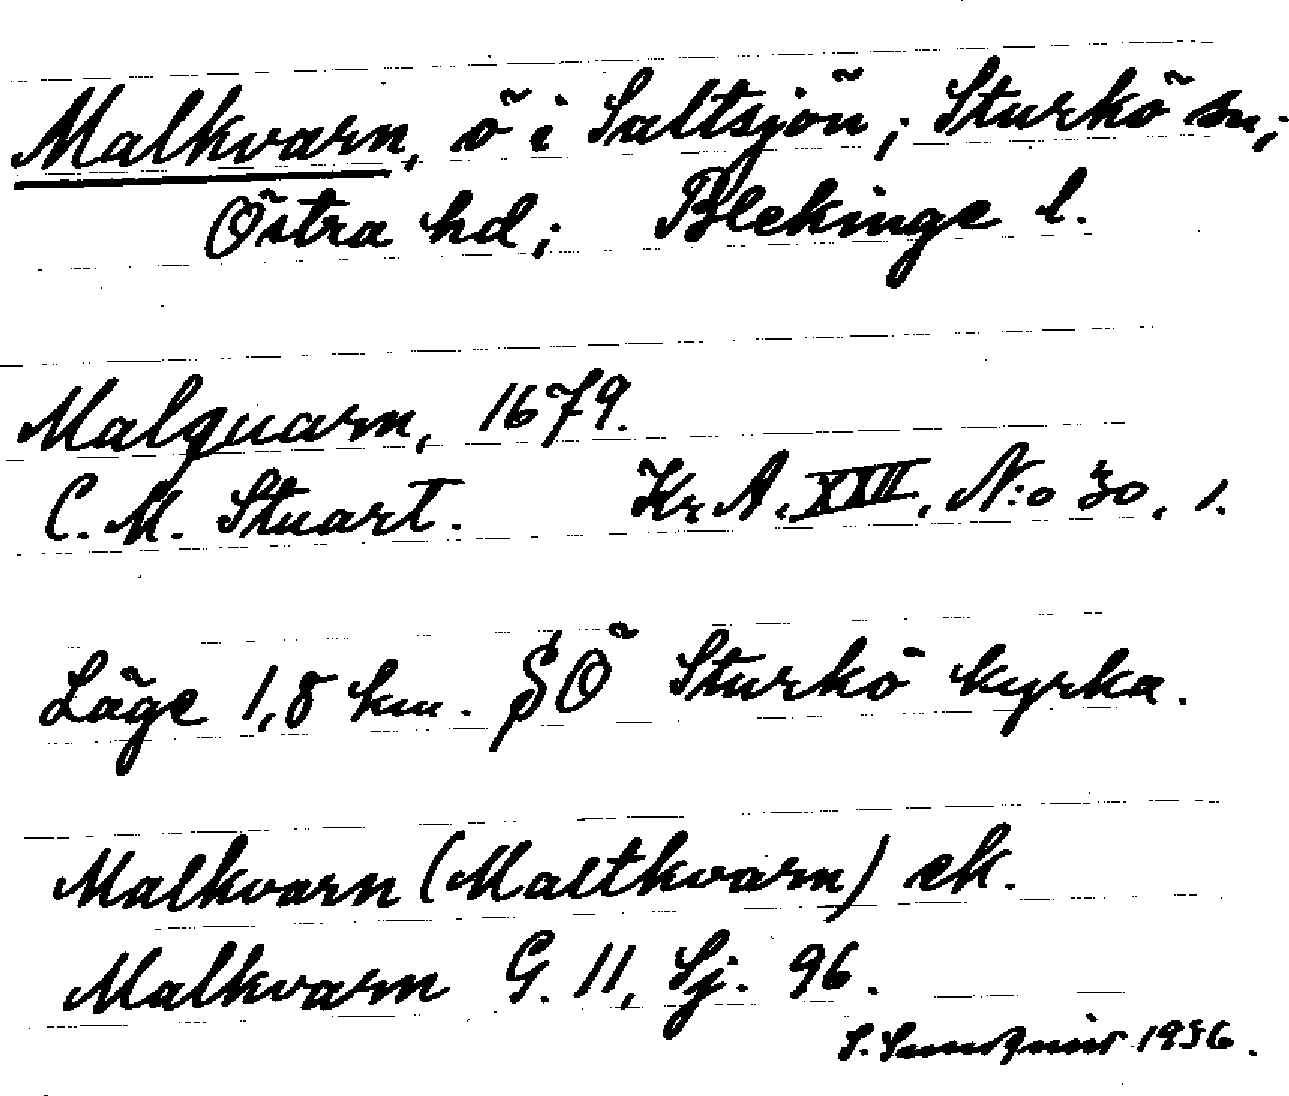 Malkvarn, ö i Saltsjön; Sturkö sn;
Östra hd; Blekinge l.
Malquarn, 1679.
C. M. Stuart. KrA. XVII. N:o 30. 1.
Läge 1,8 km. SÖ Sturkö kyrka.
Malkvarn (Maltkvarn) ek.
Malkvarn G. 11, Sj. 96.
S. 1956.